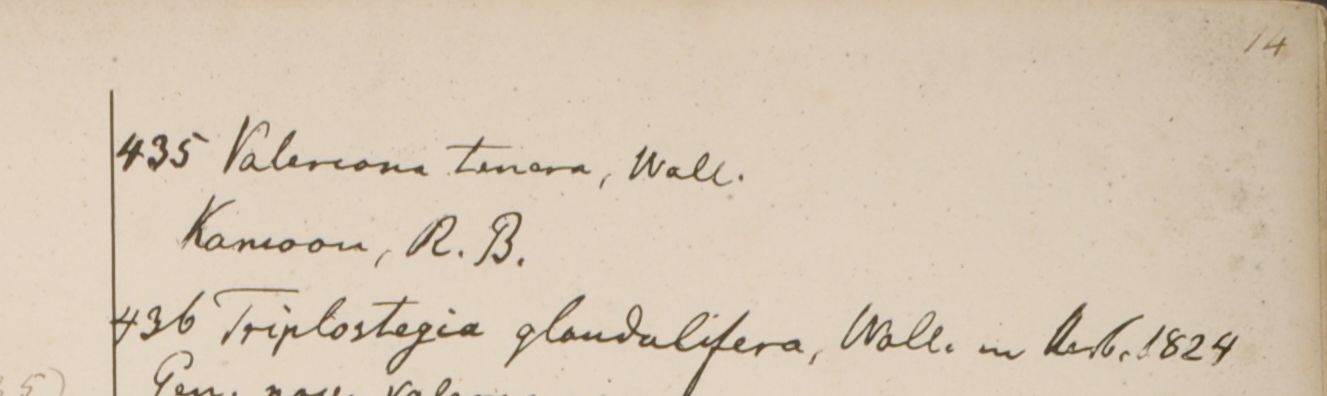 14
435 Valeriana tenera, Wall.
Kamoon, R. B.
436 Triplostegia glandulifera, Wall. in Herb. 1824
Gen. nov.